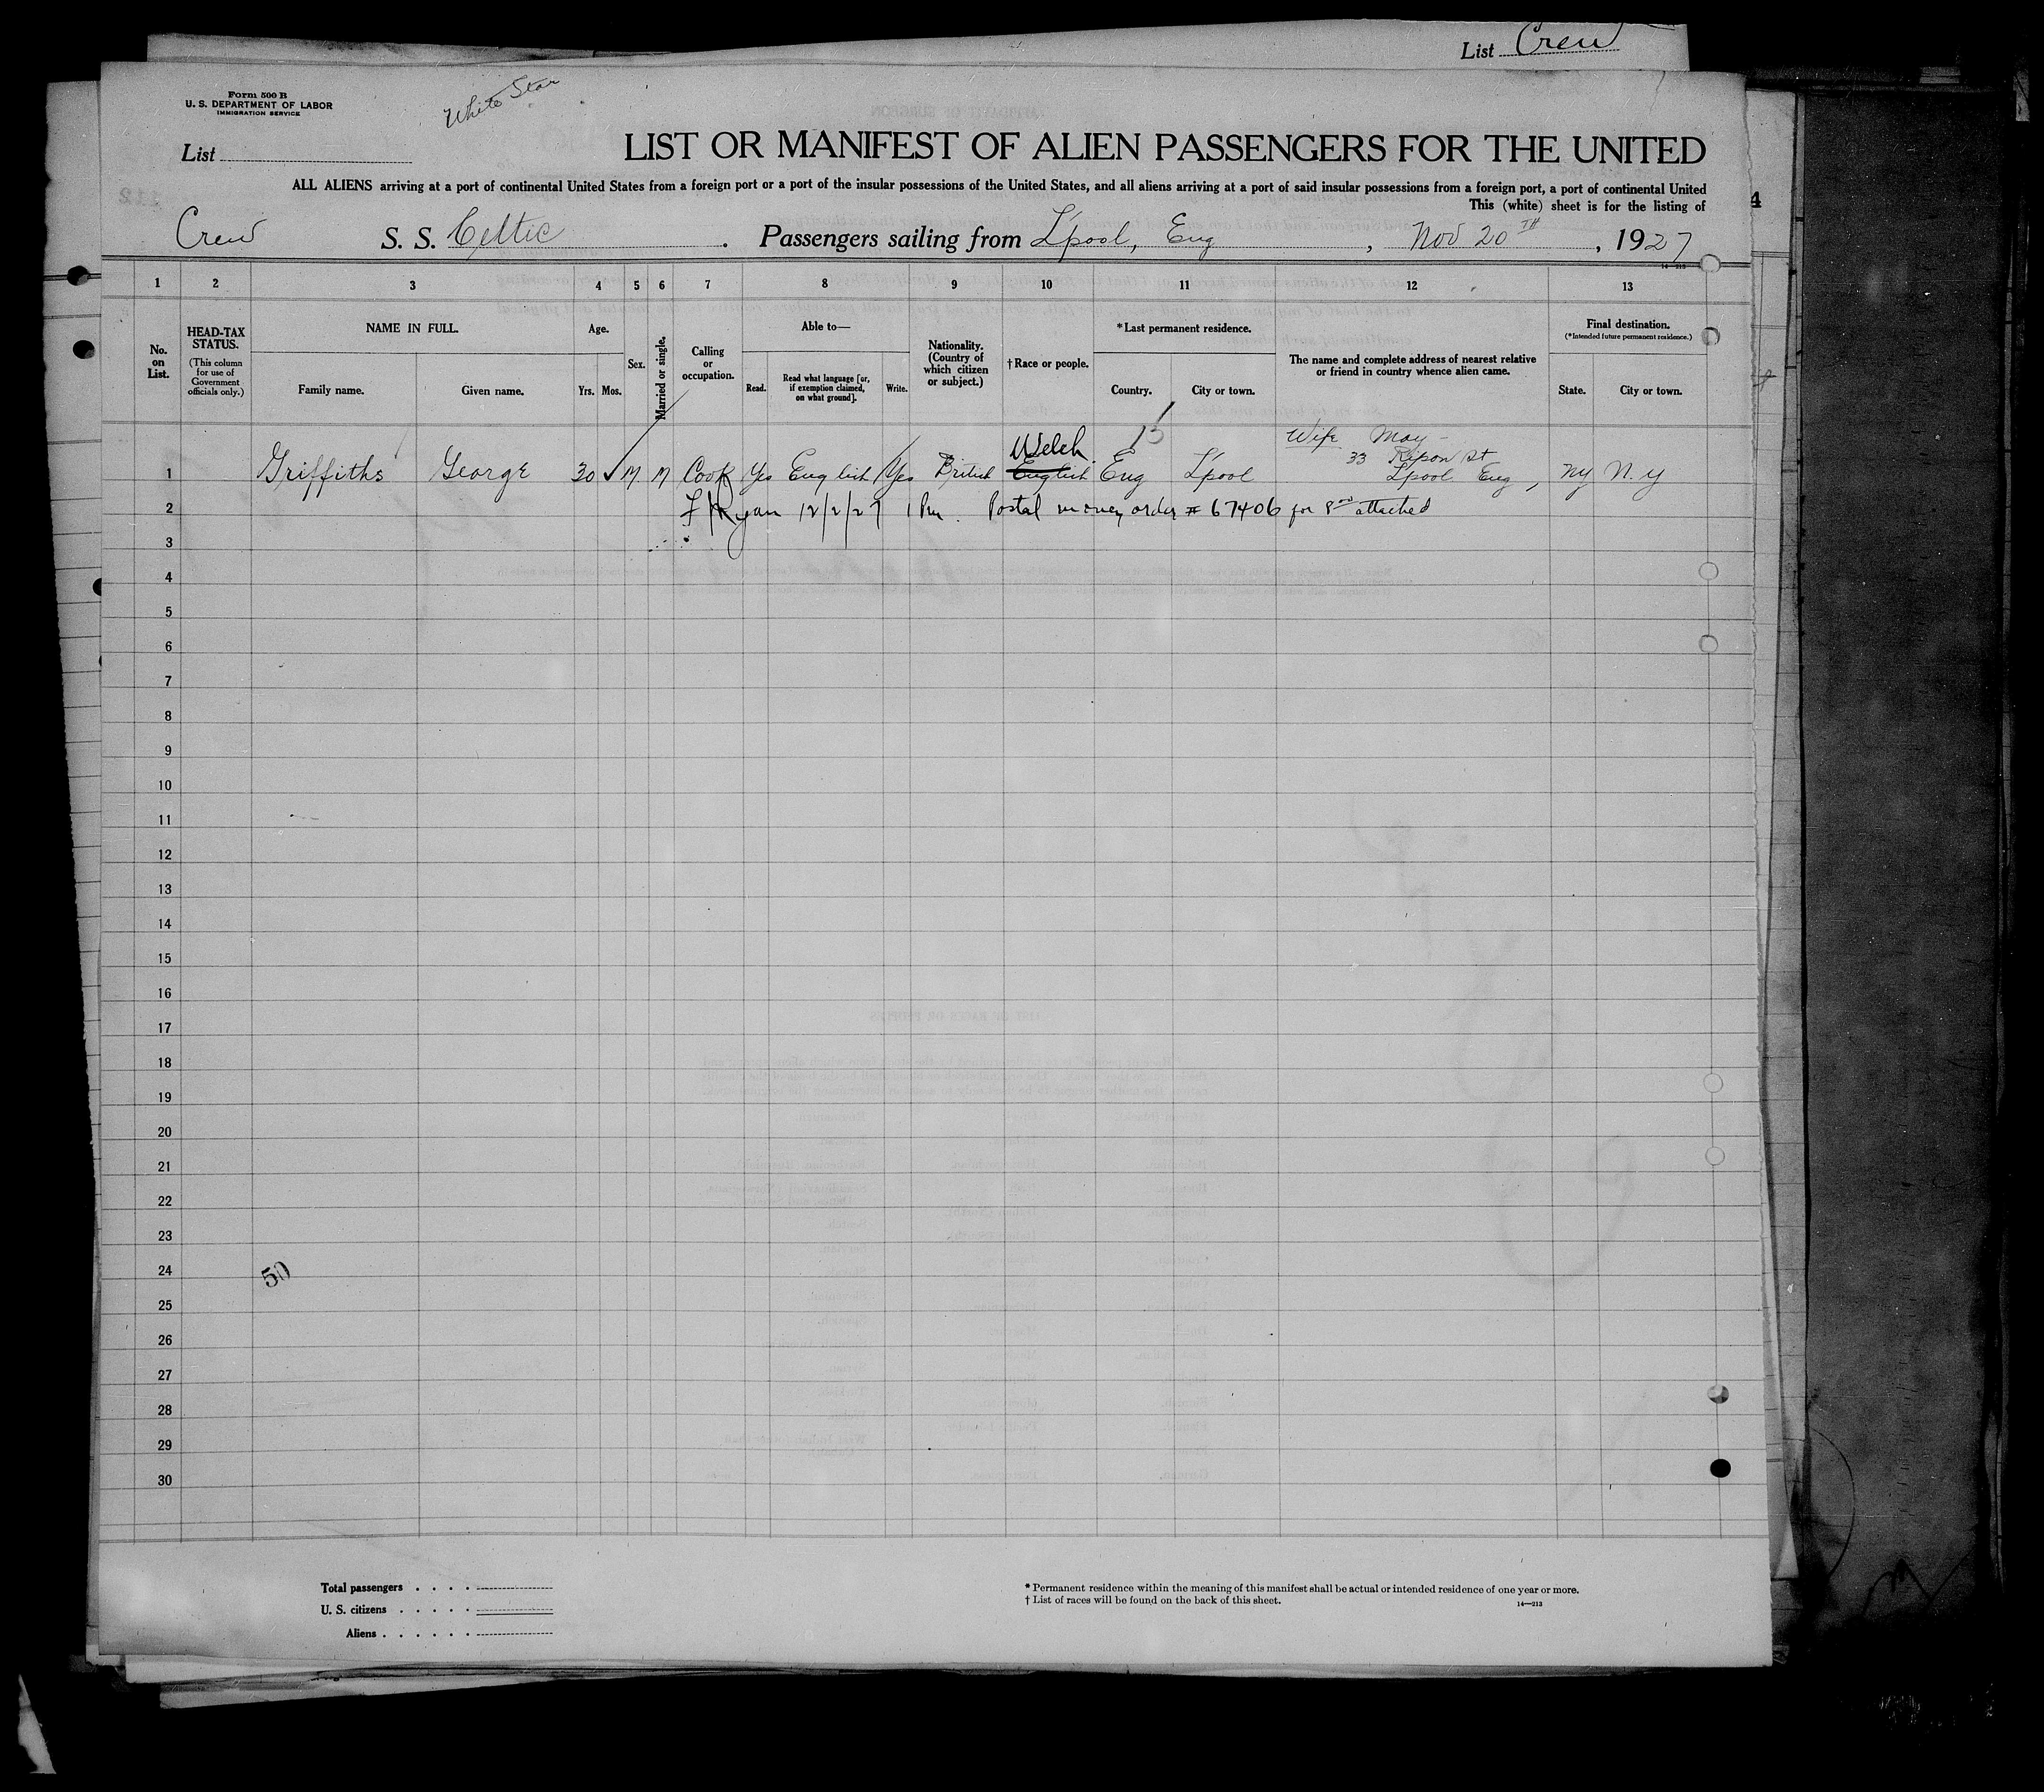 List Crew
Form 500 B
U. S. DEPARTMENT OF LABOR
IMMIGRATION SERVICE
White Star
List
LIST OR MANIFEST OF ALIEN PASSENGERS FOR THE UNITED
ALL ALIENS arriving at a port of continental United States from a foreign port or a port of the insular possessions of the United States, and all aliens arriving at a port of said insular possessions from a foreign port, a port of continental United
This (white) sheet is for the listing of
Crew S. S. Celtic . Passengers sailing from L'pool, Eng , Nov 20TH , 1927
14-213
1 2 3 4 5 6 7 8 9 10 11 12 13
HEAD-TAX STATUS. NAME IN FULL. Age. Able to— *Last permanent residence. Final destination.
(*Intended future permanent residence.)
No. on List. (This column for use of Government officials only.) Family name. Given name. Yrs. Mos. Sex. Married or single. Calling or occupation. Read. Read what language [or, if exemption claimed, on what ground]. Write. Nationality. (Country of which citizen or subject.) † Race or people. Country. City or town. The name and complete address of nearest relative or friend in country whence alien came. State. City or town.
Welch 13 Wife May -
33 Ripon St
1 Griffiths George 30 M M Cook Yes English Yes British English Eng L'pool Lpool Eng, NY N.Y
2 F Ryan 12/2/27 1 Pm. Postal money order # 67406 for 8 attached
3
4
5
6
7
8
9
10
11
12
13
14
15
16
17
18
19
20
21
22
23
24 50
25
26
27
28
29
30
Total passengers . . . .
U. S. citizens . . . . .
Aliens . . . . . .
* Permanent residence within the meaning of this manifest shall be actual or intended residence of one year or more.
† List of races will be found on the back of this sheet.
14—213